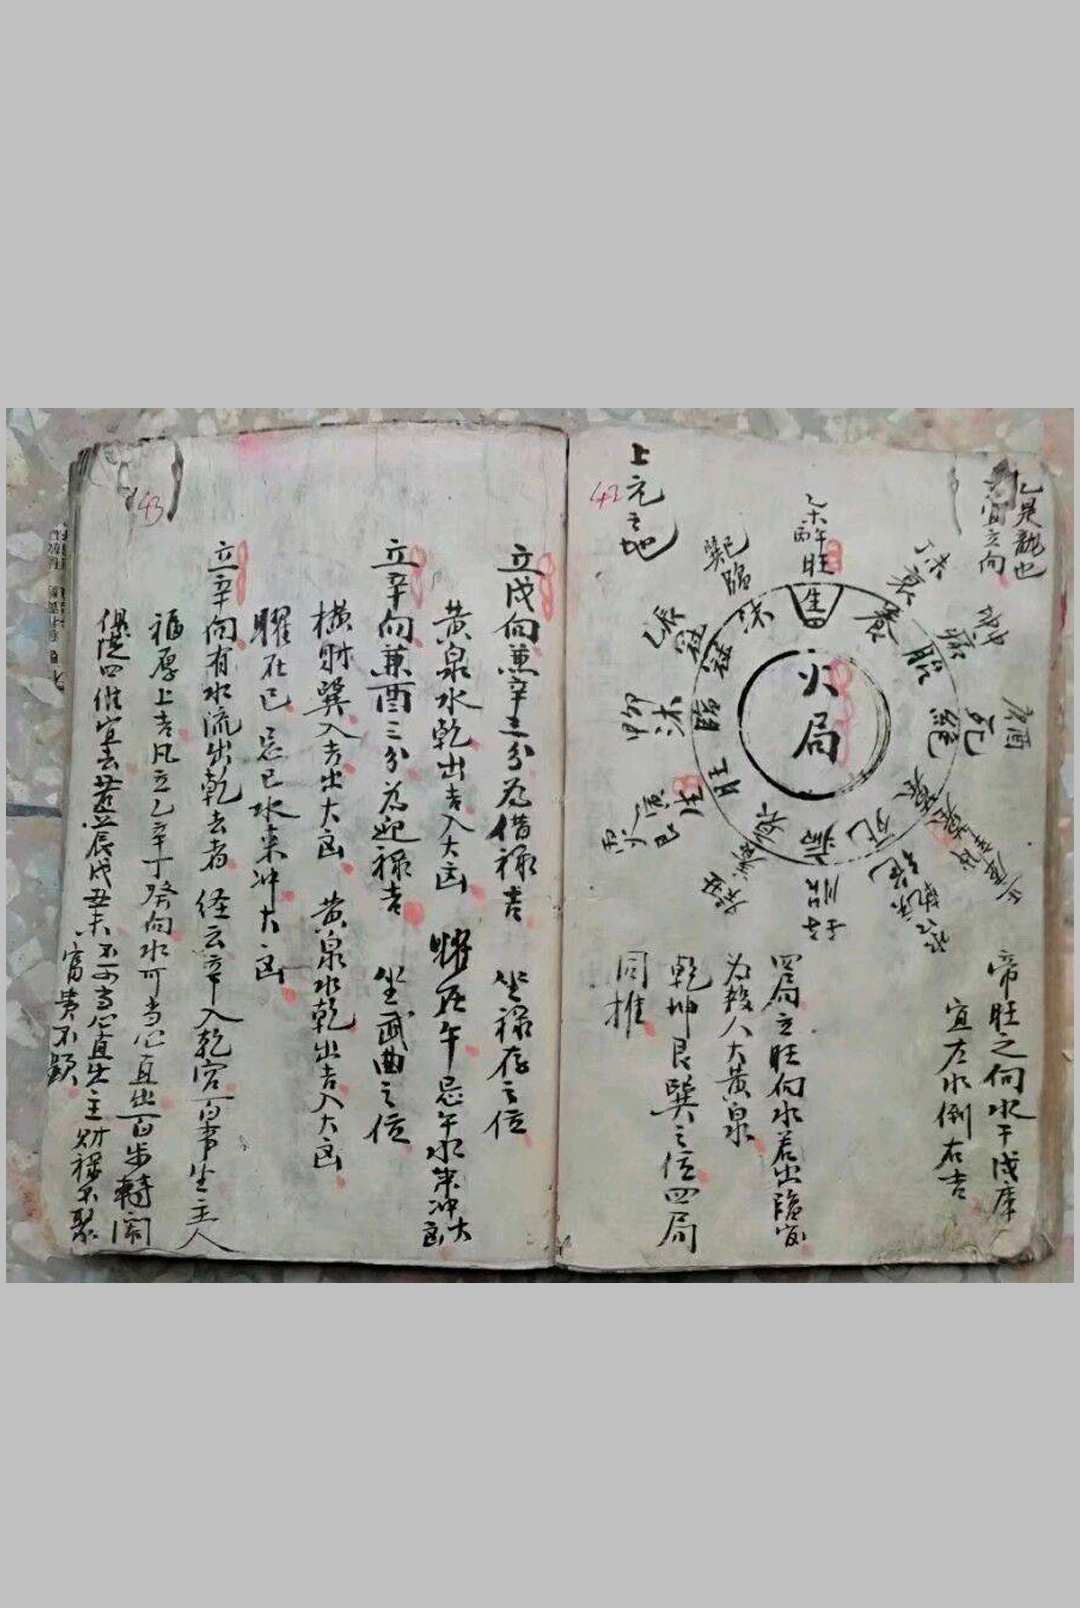 42
乙是龍也
宜立向
帝旺之向水干戌庫
宜左水倒右吉
火局
丙午旺
生
養
胎
絕
墓
死
病
衰
旺
臨
冠
沐
丁未衰
坤申病
庚酉死
辛戌墓
乾亥絕
壬子胎
癸丑養
艮寅生
甲卯沐
乙辰冠
巽巳臨
四局立旺向水若出臨官
为殺人大黄泉
乾坤艮巽之位四局
同推
上元之地
43
立戌向兼辛三分为借禄吉 坐禄存之位
黄泉水乾出吉入大凶 耀在午忌午水来冲大凶
立辛向兼酉三分为迎禄吉 坐武曲之位
横財巽入吉出大凶 黄泉水乾出吉入大凶
耀在巳忌巳水来冲大凶
立辛向有水流出乾去者 经云辛入乾宫百事坐主人
福厚上吉凡立乙辛丁癸向水可当心直出百步轉闹
俱從四维宜去甚遠辰戌丑未不可当心直出主財禄不聚
富貴不顯